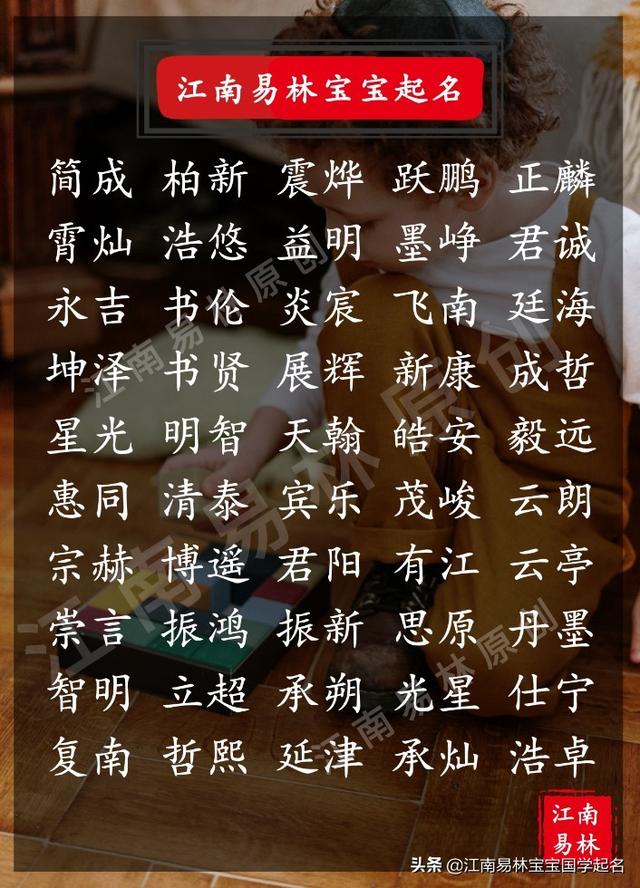 江南易林宝宝起名
简成 柏新 震烨 跃鹏 正麟
霄灿 浩悠 益明 墨峥 君诚
永吉 书伦 炎宸 飞南 廷海
坤泽 书贤 展辉 新康 成哲
星光 明智 天翰 皓安 毅远
惠同 清泰 宾乐 茂峻 云朗
宗赫 博遥 君阳 有江 云亭
崇言 振鸿 振新 思原 丹墨
智明 立超 承朔 光星 仕宁
复南 哲熙 延津 承灿 浩卓
江南易林原创
江南易林原创
江南易林原创
江南
易林
头条 @江南易林宝宝国学起名